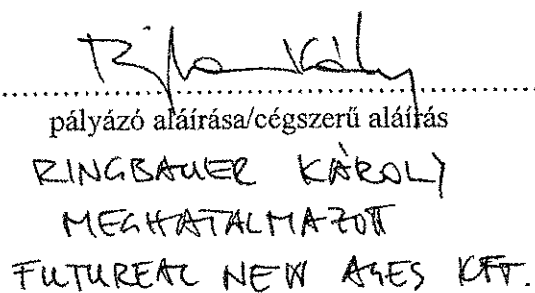 pályázó aláírása/cégszerű aláírás
RINGBAUER KÁROLY
MEGHATALMAZOTT
FUTUREAL NEW AGES KFT.